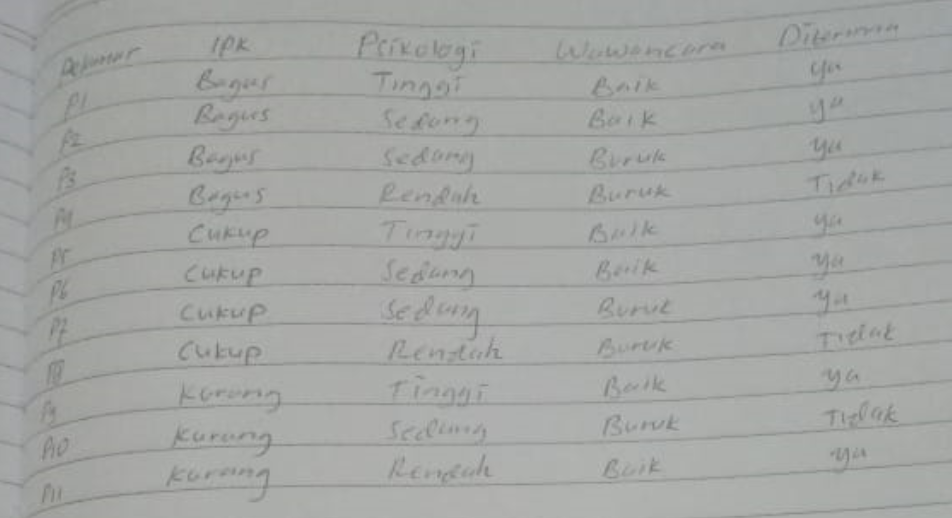 Pelamar IPK Psikologi Wawancara Diterima
P1 Bagus Tinggi Baik ya
P2 Bagus Sedang Baik ya
P3 Bagus Sedang Buruk ya
P4 Bagus Rendah Buruk Tidak
P5 Cukup Tinggi Baik ya
P6 Cukup Sedang Baik ya
P7 Cukup Sedang Buruk ya
P8 Cukup Rendah Buruk Tidak
P9 Kurang Tinggi Baik ya
P10 Kurang Sedang Buruk Tidak
P11 Kurang Rendah Baik ya